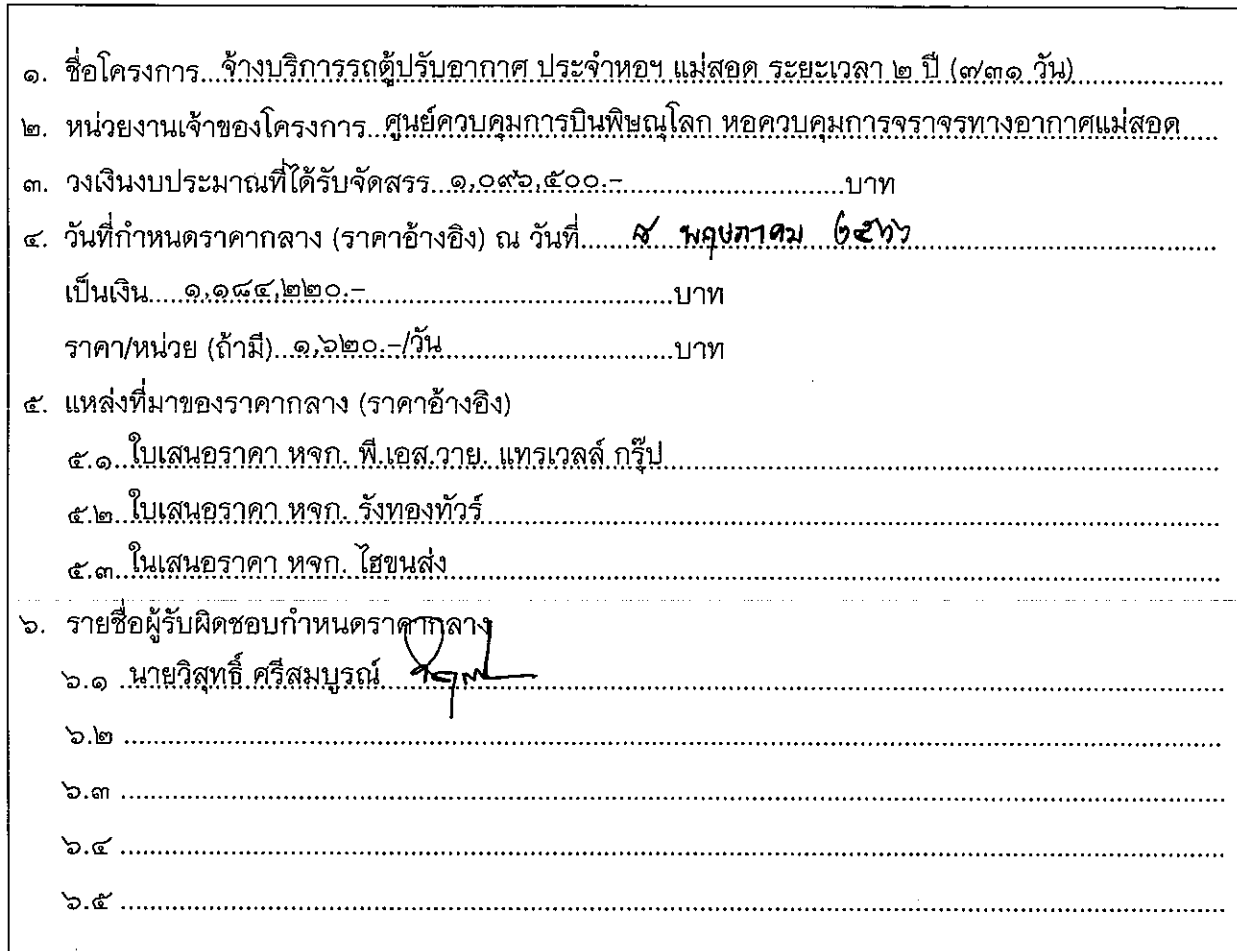 ๑. ชื่อโครงการ...จ้างบริการรถตู้ปรับอากาศ ประจำหอฯ แม่สอด ระยะเวลา ๒ ปี (๗๓๑ วัน)
๒. หน่วยงานเจ้าของโครงการ...ศูนย์ควบคุมการบินพิษณุโลก หอควบคุมการจราจรทางอากาศแม่สอด
๓. วงเงินงบประมาณที่ได้รับจัดสรร...๑,๐๙๖,๕๐๐.-...บาท
๔. วันที่กำหนดราคากลาง (ราคาอ้างอิง) ณ วันที่... พฤษภาคม ๒๕๖๖
เป็นเงิน...๑,๑๘๔,๒๒๐.-...บาท
ราคา/หน่วย (ถ้ามี)...๑,๖๒๐.-/วัน...บาท
๕. แหล่งที่มาของราคากลาง (ราคาอ้างอิง)
๕.๑ ใบเสนอราคา หจก. พี.เอส.วาย. แทรเวลล์ กรุ๊ป
๕.๒ ใบเสนอราคา หจก. รังทองทัวร์
๕.๓ ในเสนอราคา หจก. ไฮขนส่ง
๖. รายชื่อผู้รับผิดชอบกำหนดราคากลาง
๖.๑ นายวิสุทธิ์ ศรีสมบูรณ์
๖.๒
๖.๓
๖.๔
๖.๕